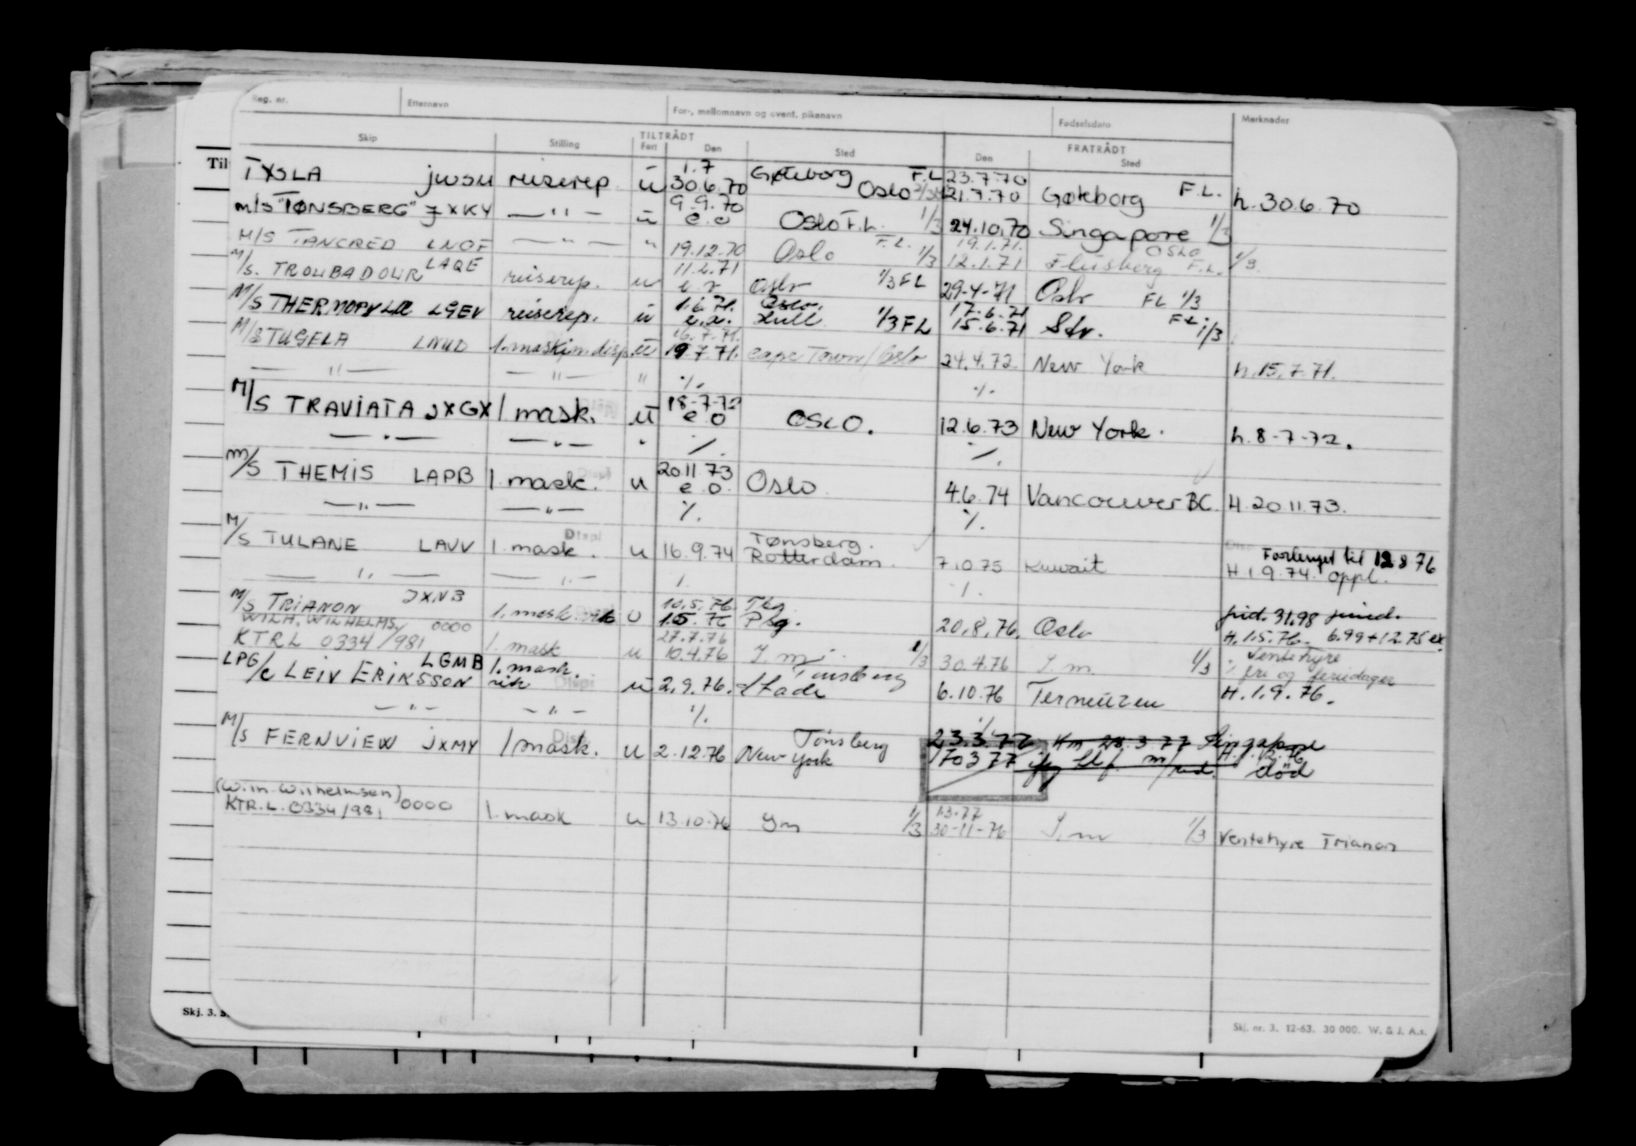 Reg. nr. Etternavn For-, mellomnavn og event. pikenavn Fødselsdato Merknader
Skip Stilling TILTRÅDT FRATRÅDT
Fart Den Sted Den Sted
Til
1.7 Gøteborg F.L. 23.7.70
TYSLA JWSU reiserep. u 30.6.70 Oslo 1/3 21.7.70 Gøteborg F.L. h. 30.6.70
9.9.70
M/S "TØNSBERG" JXKY — " — u e.o Oslo F.L. 1/3 24.10.70 Singapore 1/3
19.1.71. OSLO
M/S TANCRED LNOF — " — " 19.12.70 Oslo F.L. 1/3 12.1.71 F.L. 1/3.
11.2.71
M/S. TROUBADOUR LAQE reiserep. u Oslo 1/3 FL 29-4-71 Oslo FL 1/3
1.6.71. Oslo. 17.6.71
M/S THERMOPYLÆ LGEV reiserep. u Hull 1/3 FL 15.6.71 Stv. F.L. 1/3
16.7.71.
M/S TUGELA LNUD 1.maskjm.disp. u 19.7.71. Cape Town / Oslo 24.4.72. New York h. 15.7.71.
— " — — " — " %. %.
18-7-72
M/S TRAVIATA JXGX 1 mask. u e.o OSLO. 12.6.73 New York. h. 8-7-72.
— " — — " — " %. %.
20.11.73
M/S THEMIS LAPB 1. mask. u e.o. Oslo. 4.6.74 Vancouver BC. H. 20.11.73.
— " — — " — %. %.
Dispi Tønsberg. Forlenget til 12.8.76
M/S TULANE LAVV 1. mask. u 16.9.74 Rotterdam. 7.10.75 Kuwait H 1.9.74. oppl.
— " — — " — %. %.
10.5.76 Tbg.
M/S TRIANON JXNB 1. mask. u 1.5.76 Pbg. 20.8.76. Oslo H. 1.5.76.
WILH. WILHELMS. 0000 27.7.76
KTRL 0334/981 1. mask u 10.4.76 1/3 30.4.76 1/3 Ventehyre
fri og feriedager
LPG/C LEIV ERIKSSON LGMB 1. mask. u 2.9.76. Tønsberg Stade 6.10.76 Terneuzen H. 1.9.76.
— " — — " — %. %.
Tønsberg 23.3.77 Singapore
M/S FERNVIEW JXMY 1 mask. u 2.12.76 New York død
(W.m. Wilhelmsen)
1.3.77
KTR.L.0334/981 0000 1. mask u 13.10.76 1/3 30-11-76 1/3 Ventehyre Trianon
Skj. 3.
Skj. nr. 3. 12-63. 30 000. W. & J. A.s.